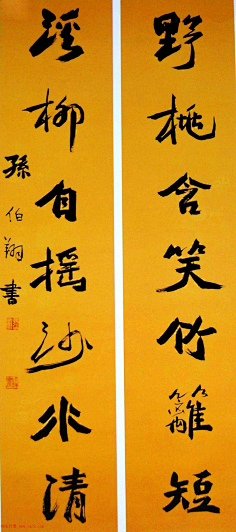 野桃含笑竹籬短
溪柳自摇沙水清
孫伯翔書